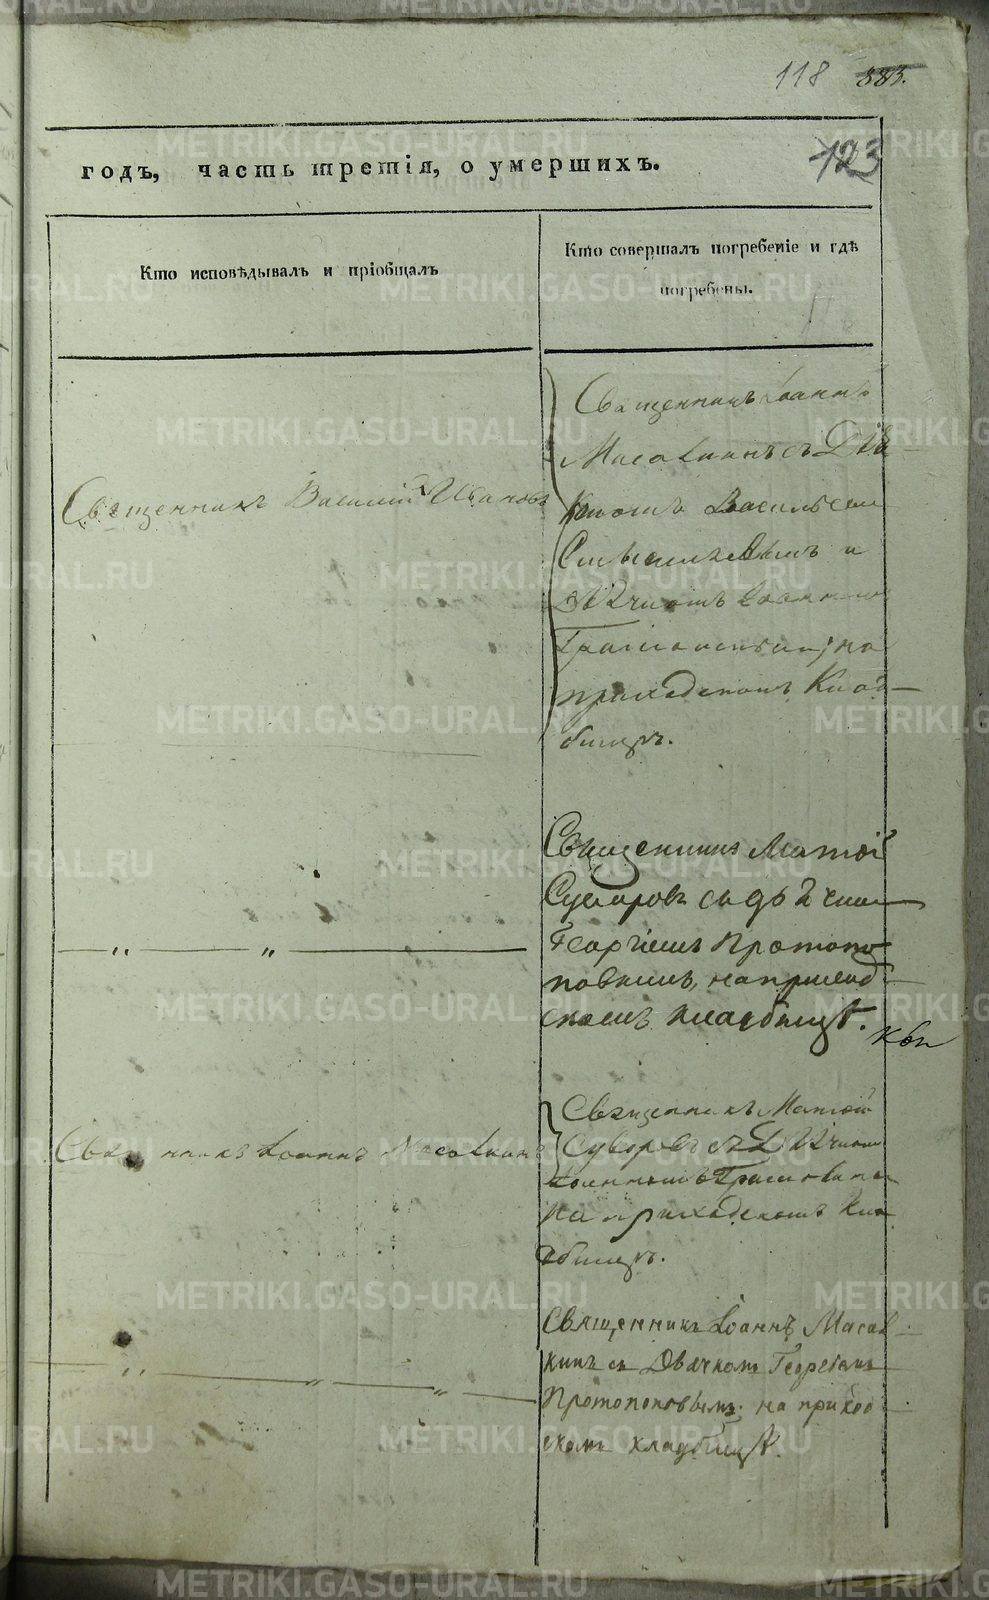 118 383.
123
годъ, часть третія, о умершихъ.
Кто исповѣдывалъ и пріобщалъ
Кто совершалъ погребеніе и гдѣ
погребены.
Священникъ Іоаннъ
съ Діа
Священникъ Василій Ивановъ
кономъ Васильемъ
и
Дьячкомъ Іоанномъ
на
приходскомъ Клад
бищѣ.
Священникъ Матѳей
Суворовъ съ дьячкомъ
Георгіемъ Протопо
повымъ, на приход
скомъ кладбищѣ.
Священникъ Матѳей
Священникъ Іоаннъ
Суворовъ съ Дьячкомъ
Іоанномъ
на приходскомъ Кла
дбищѣ.
Священникъ Іоаннъ Масал
кинъ съ Дьячкомъ Георгіемъ
Протопоповымъ на приход
скомъ кладбищѣ.
METRIKI.GASO-URAL.RU